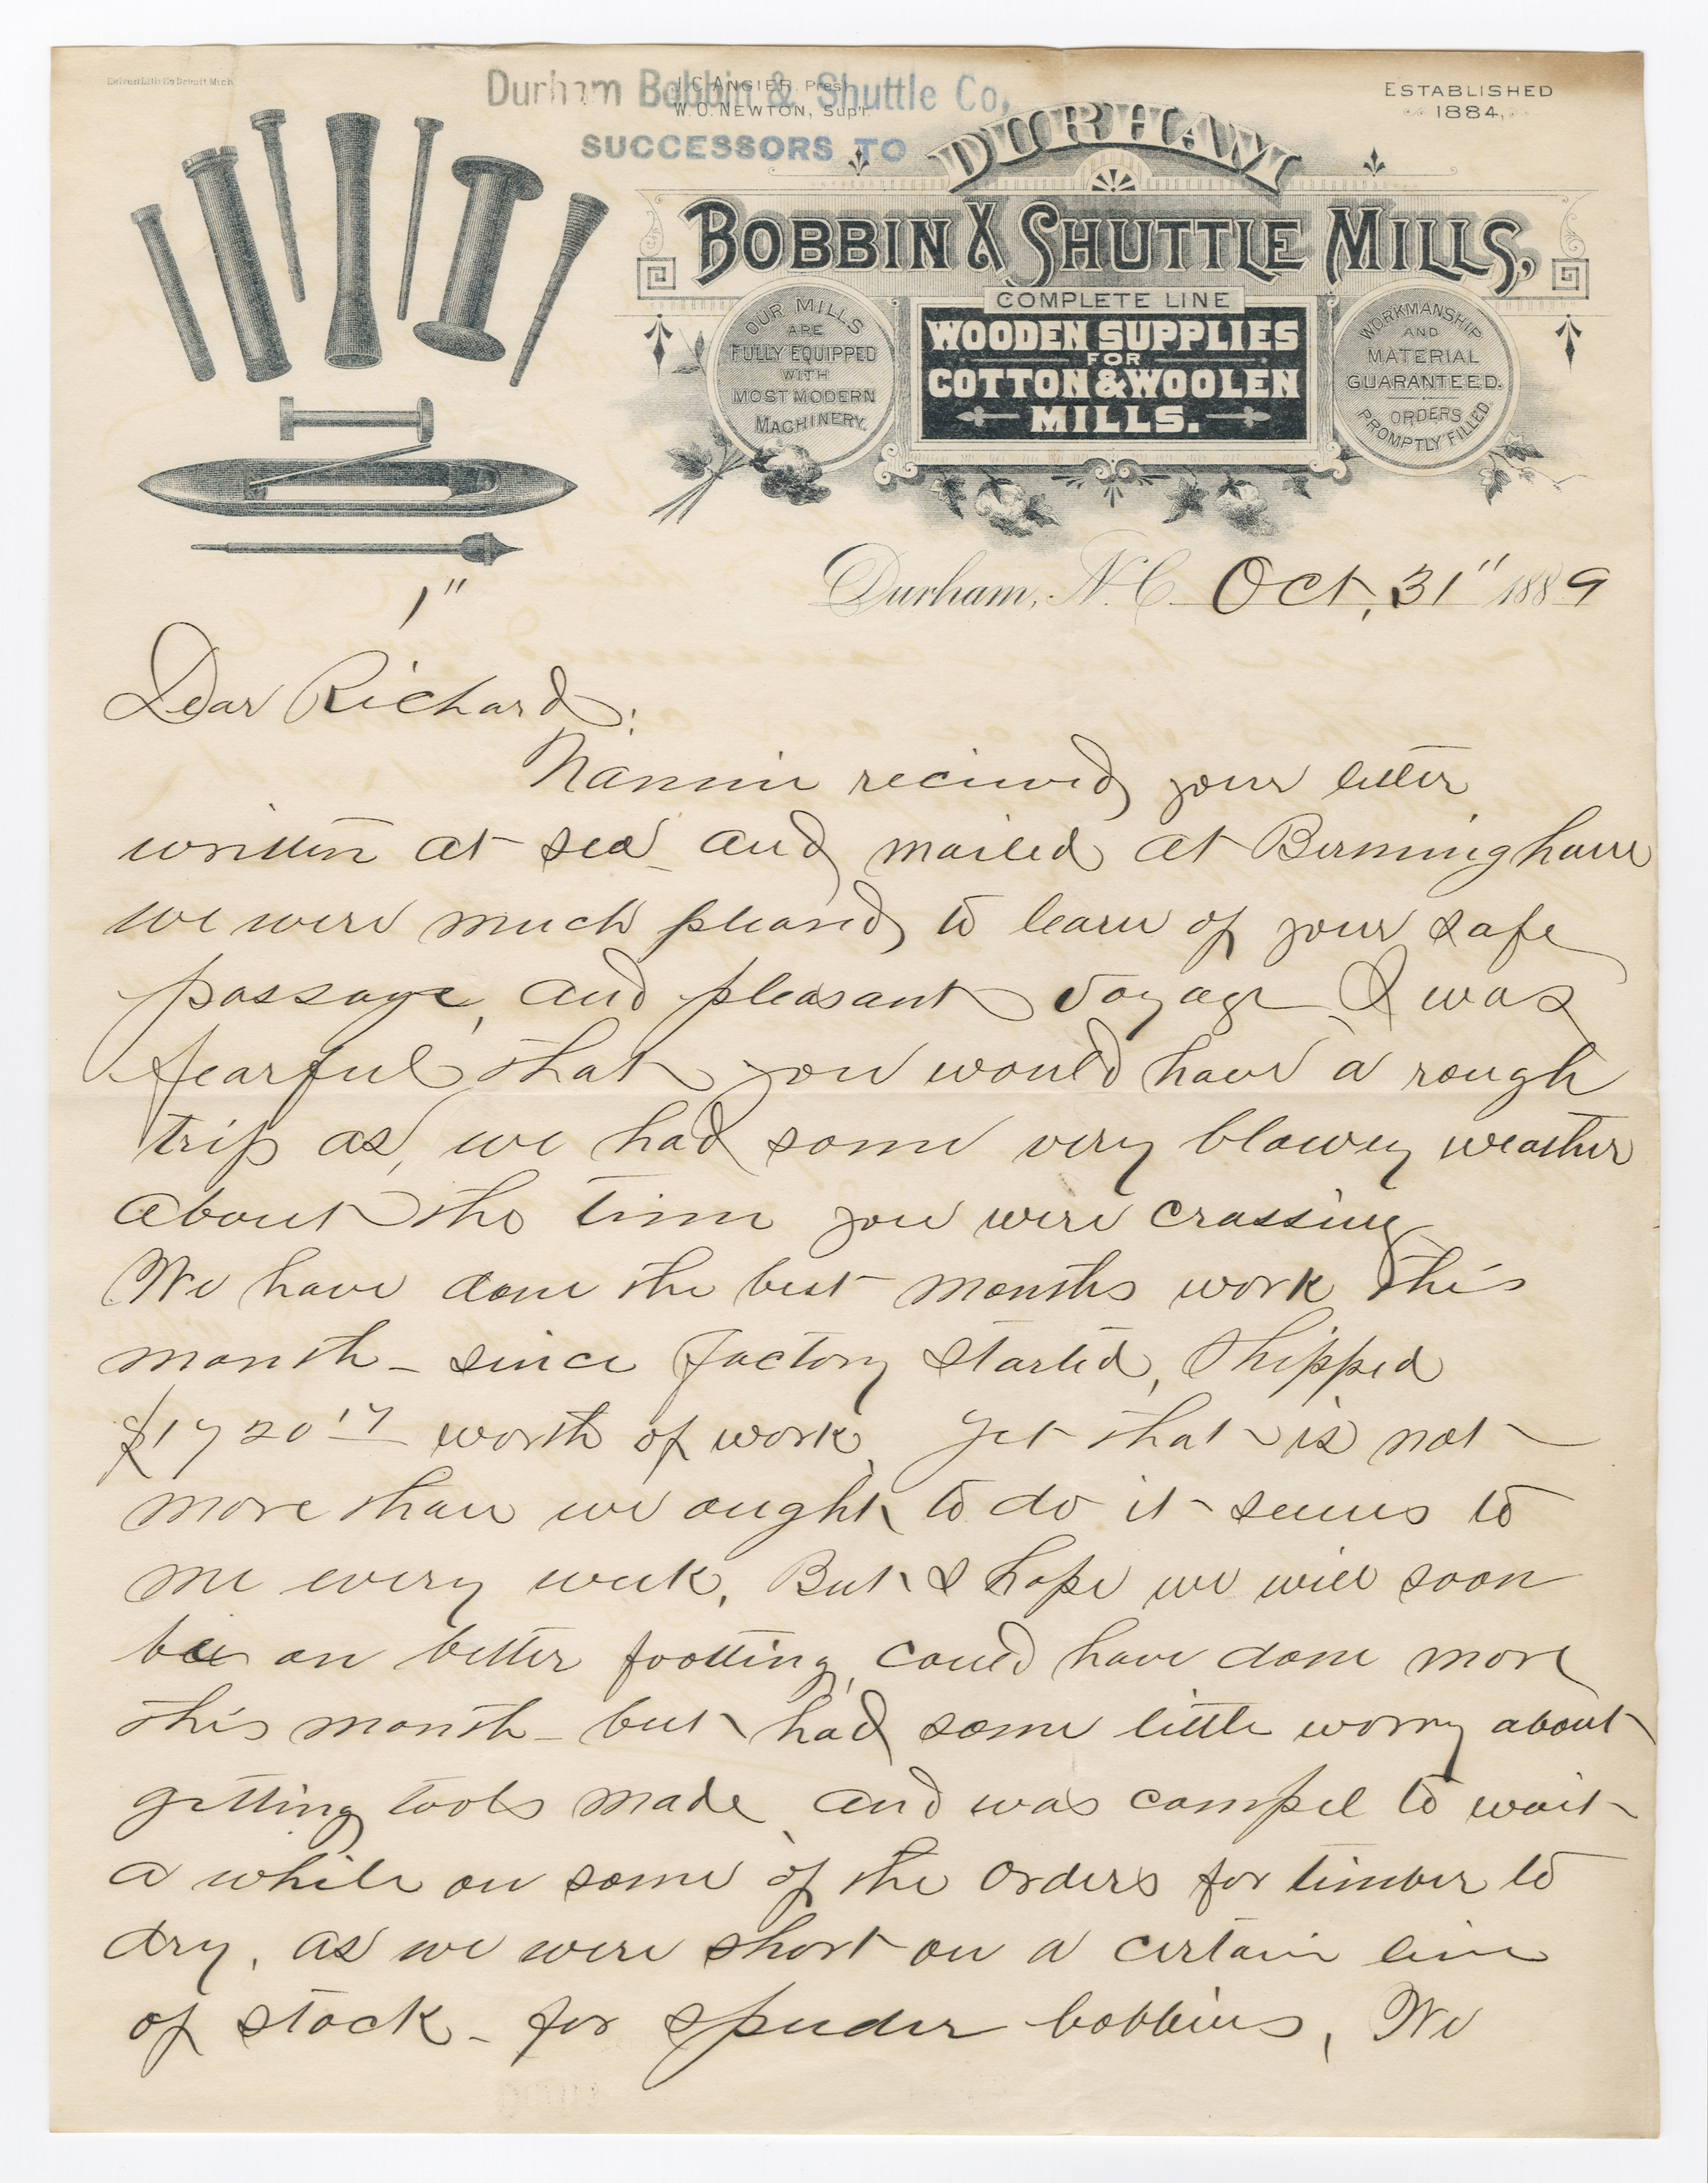 Calvert Lith Co Detroit Mich
Durham Bobbin & Shuttle Co,
SUCCESSORS TO
J. C. ANGIER, Prest.
W. O. NEWTON, Sup't.
ESTABLISHED
1884,
DURHAM
BOBBIN & SHUTTLE MILLS,
COMPLETE LINE
WOODEN SUPPLIES
FOR
COTTON & WOOLEN
MILLS.
OUR MILLS
ARE
FULLY EQUIPPED
WITH
MOST MODERN
MACHINERY.
WORKMANSHIP
AND
MATERIAL
GUARANTEED.
ORDERS
PROMPTLY FILLED.
1"
Durham, N. C. Oct, 31" 1889
Dear Richard;
Nannie recieved your letter
written at sea and mailed at Birmingham
we were much pleased to learn of your safe
passage, and pleasant voyage, I was
fearful that you would have a rough
trip as, we had some very blowey weather
about the time you were crassing
We have done the best months work this
month - since factory started, Shipped
$1720 17 worth of work, yet that is not
more than we ought to do it seems to
me every week, But I hope we will soon
bee on better footting, could have done more
this month - but had some little worry about
getting tools made, and was compel to wait
a while on some of the orders for timber to
dry, as we were short on a certain line
of stock - for speeder bobbins, We